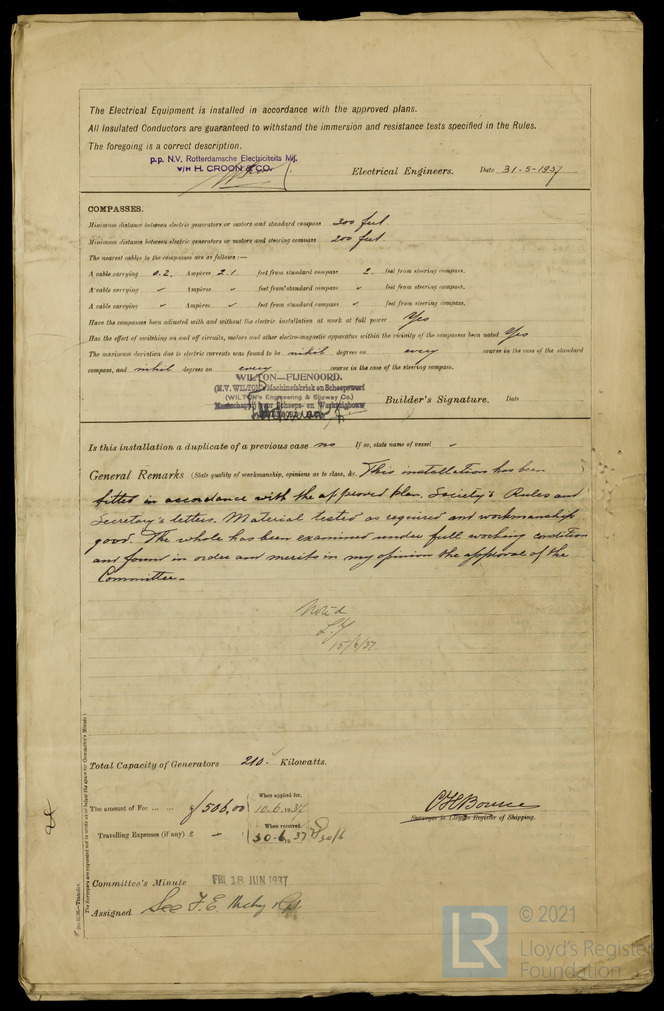 The Electrical Equipment is installed in accordance with the approved plans.
All Insulated Conductors are guaranteed to withstand the immersion and resistance tests specified in the Rules.
The foregoing is a correct description.
p.p. N.V. Rotterdamsche Electriciteits Mij.
v/H H. CROON & CO.
Electrical Engineers. Date 31-5-1937
COMPASSES.
Minimum distance between electric generators or motors and standard compass 300 feet
Minimum distance between electric generators or motors and steering compass 200 feet
The nearest cables to the compasses are as follows:—
A cable carrying 0.2. Ampères 2.1 feet from standard compass 2. feet from steering compass.
A cable carrying Ampères feet from standard compass feet from steering compass.
A cable carrying Ampères feet from standard compass feet from steering compass.
Have the compasses been adjusted with and without the electric installation at work at full power Yes
Has the effect of switching on and off circuits, motors and other electro-magnetic apparatus within the vicinity of the compasses been noted Yes
The maximum deviation due to electric currents was found to be nihil degrees on every course in the case of the standard
compass, and nihil degrees on every course in the case of the steering compass.
WILTON—FIJENOORD.
(N.V. WILTON's Machinefabriek en Scheepswerf
(WILTON's Engineering & Slipway Co.)
Maatschappij voor Scheeps- en Werktuigbouw
Builder's Signature. Date
Is this installation a duplicate of a previous case no If so, state name of vessel
General Remarks (State quality of workmanship, opinions as to class, &c. This installation has been
fitted in accordance with the approved plan, Society's Rules and
Secretary's letters. Material tested as required and workmanship
good. The whole has been examined under full working condition
and found in order and merits in my opinion the approval of the
Committee.
Noted
15/6/37.
Total Capacity of Generators 210. Kilowatts.
The amount of Fee ... ... ƒ 506,00
When applied for,
10.6.1937
Travelling Expenses (if any) £
When received,
30.6.1937
30/6
Surveyor to Lloyd's Register of Shipping.
Committee's Minute FRI 18 JUN 1937
Assigned See F.E. Mchy Rpt
The Surveyors are requested not to write on or below the space for Committee's Minute
© 2021
LR
Lloyd's Register
Foundation